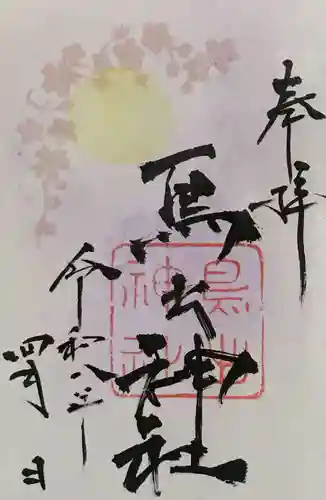 奉拝
鳥出神社
鳥出
神社
令和八年
四月 日